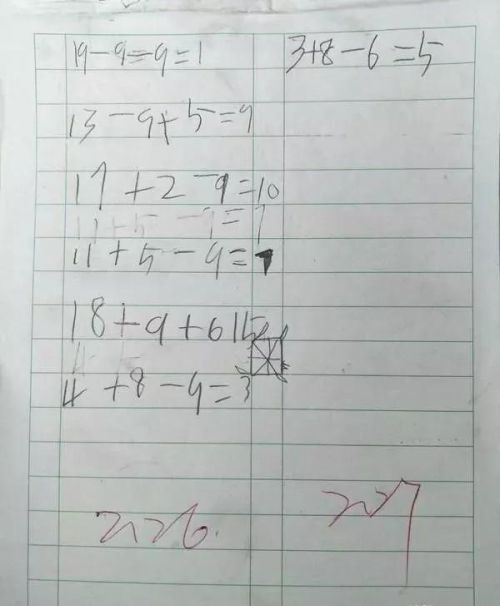 19-9=9=1
13-9+5=9
17+2-9=10
11+5-9=7
18+9+615
4+8-9=3
3+8-6=5
2.26.
227